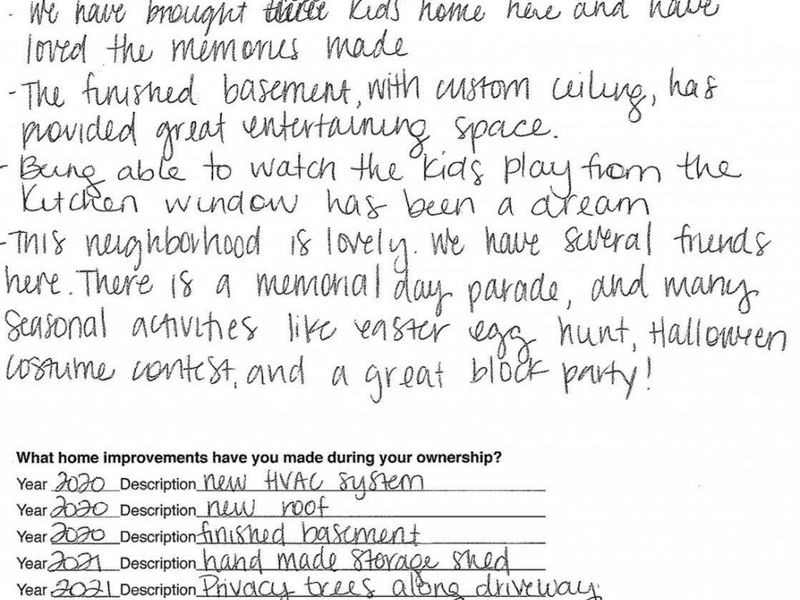 - We have brought three kids home here and have
loved the memories made
- The finished basement, with custom ceiling, has
provided great entertaining space.
- Being able to watch the kids play from the
kitchen window has been a dream
- This neighborhood is lovely. We have several friends
here. There is a memorial day parade, and many
seasonal activities like easter egg hunt, Halloween
costume contest, and a great block party!
What home improvements have you made during your ownership?
Year 2020 Description new HVAC system
Year 2020 Description new roof
Year 2020 Description finished basement
Year 2021 Description hand made storage shed
Year 2021 Description Privacy trees along driveway.